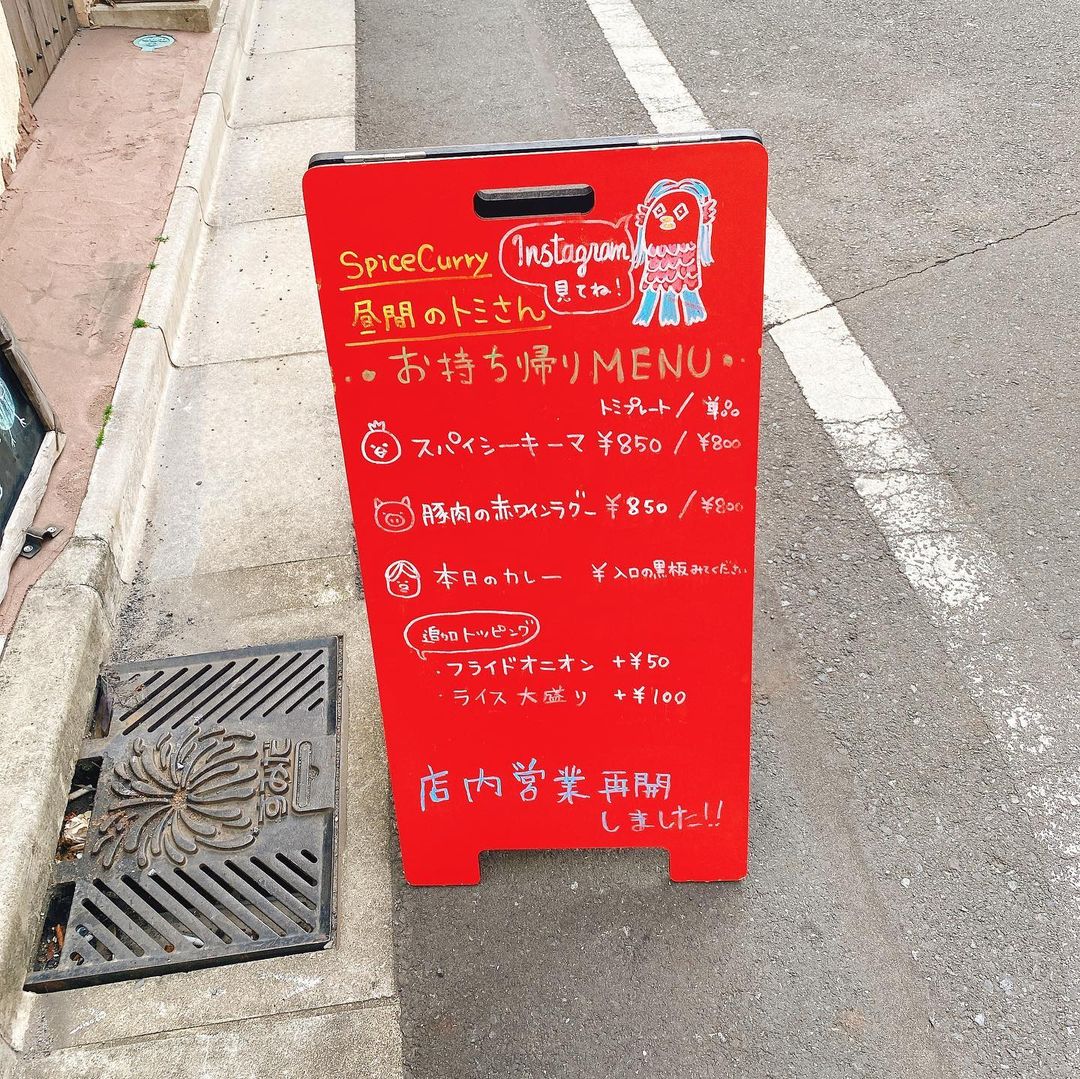 SpiceCurry
昼間のトミさん
Instagram
見てね!
お持ち帰りMENU
トミプレート / 単品
スパイシーキーマ ¥850 / ¥800
豚肉の赤ワインラグー ¥850 / ¥800
本日のカレー ¥入口の黒板みてください
追加トッピング
・フライドオニオン +¥50
・ライス大盛り +¥100
店内営業再開
しました!!